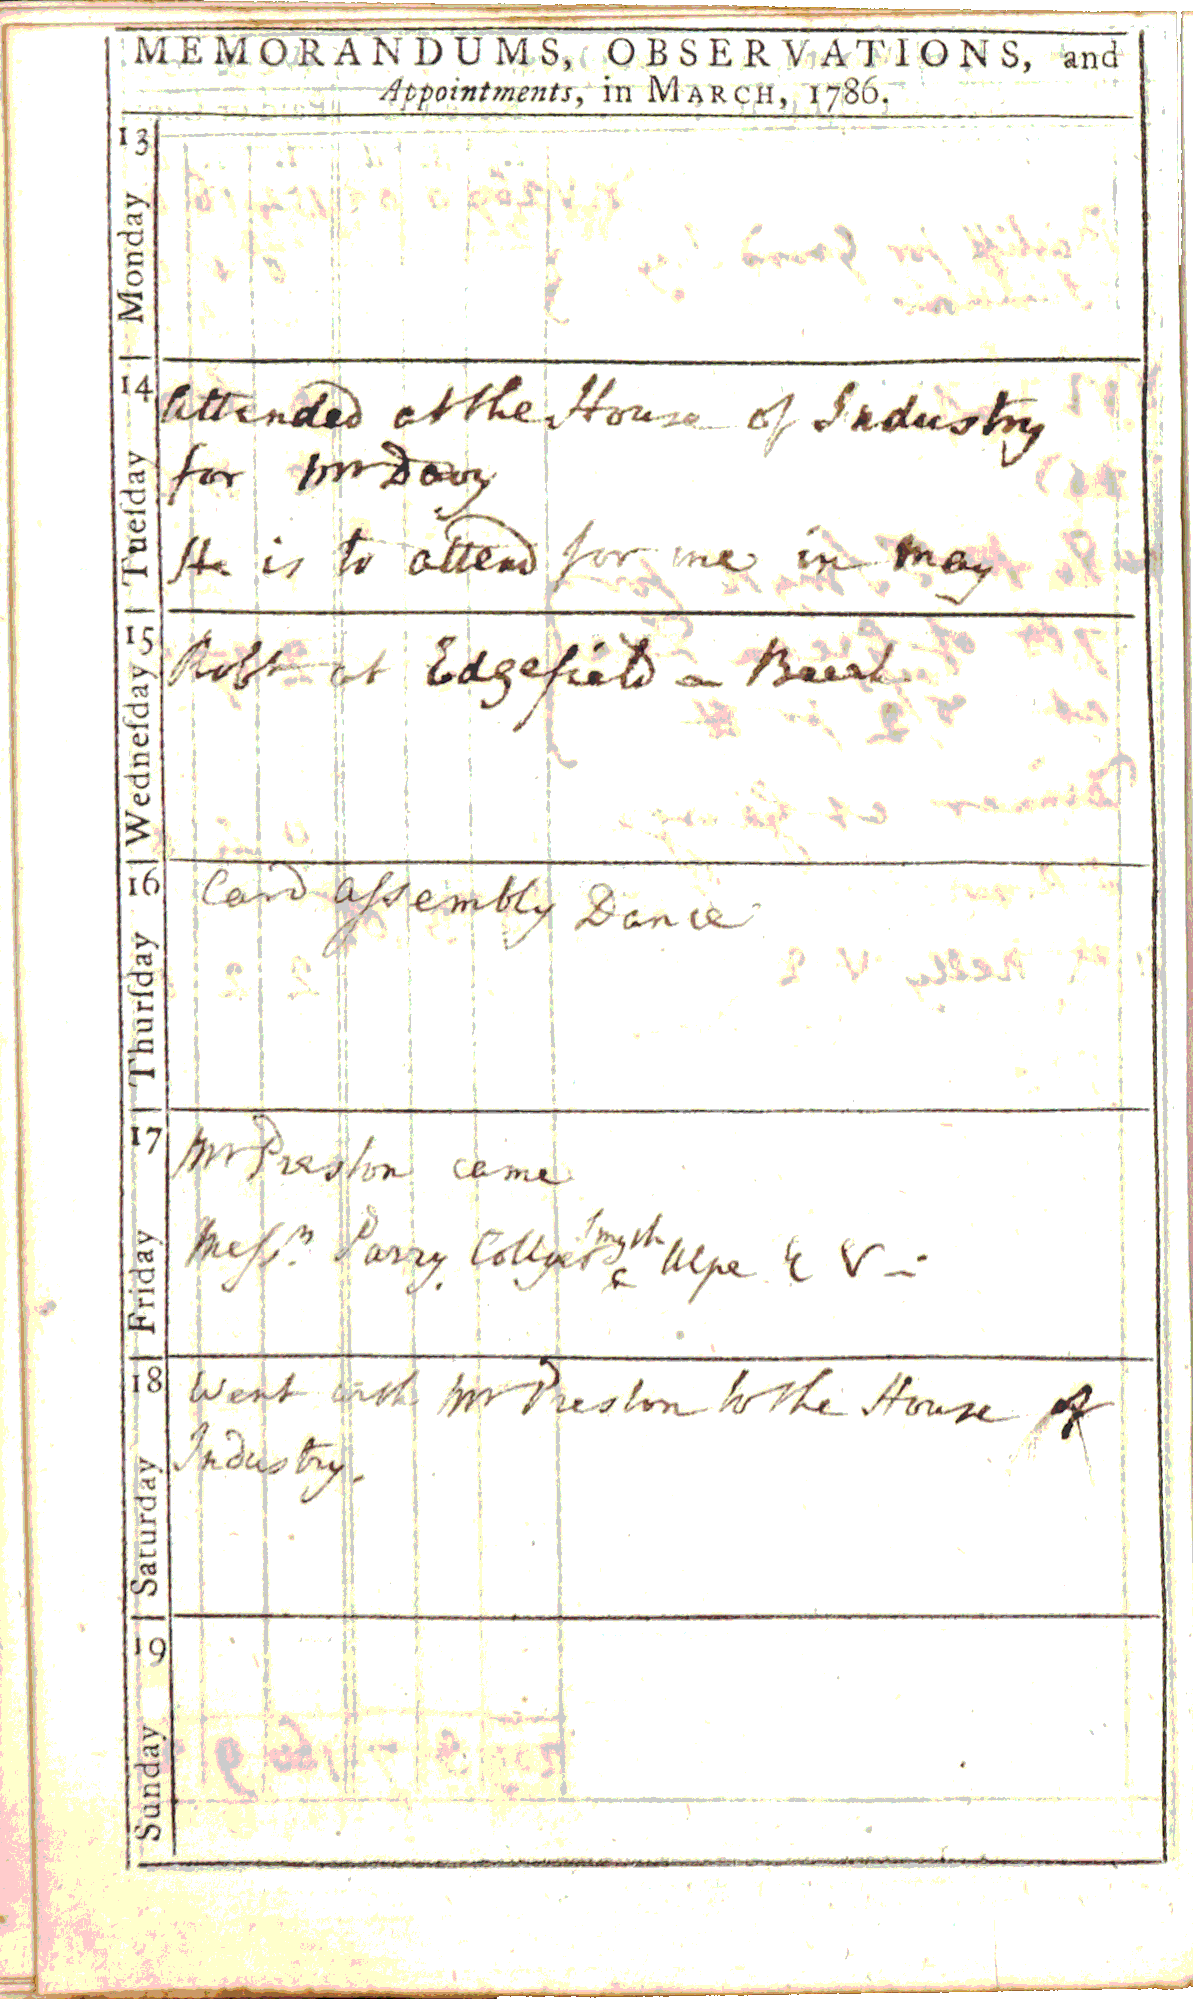 MEMORANDUMS, OBSERVATIONS, and
Appointments, in MARCH, 1786.
13
Monday
14
Tueſday
Attended at the House of Industry
for Mr Davy
He is to attend for me in May
15
Wedneſday
Robt at Edgefield a
16
Thurſday
Card Aſsembly Dance
17
Friday
Mr Preston came
Smyth
Meſsrs. Parry, Collyer & Alpe E V -
18
Saturday
Went with Mr Preston to the House of
Industry.
19
Sunday